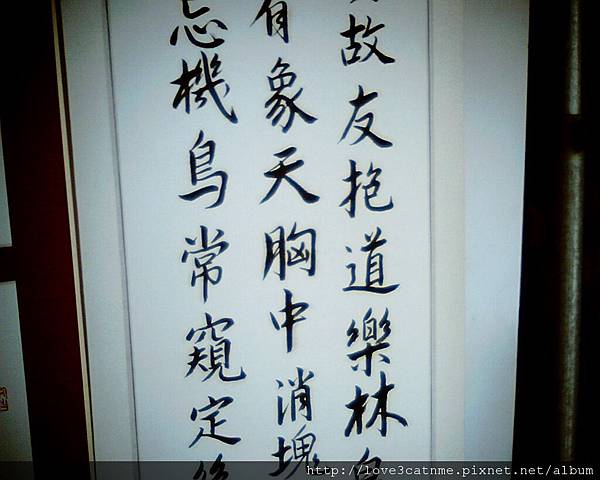 故友抱道樂林
有象天胸中消塊
忘機鳥常窺定
http://love3catnme.pixnet.net/album